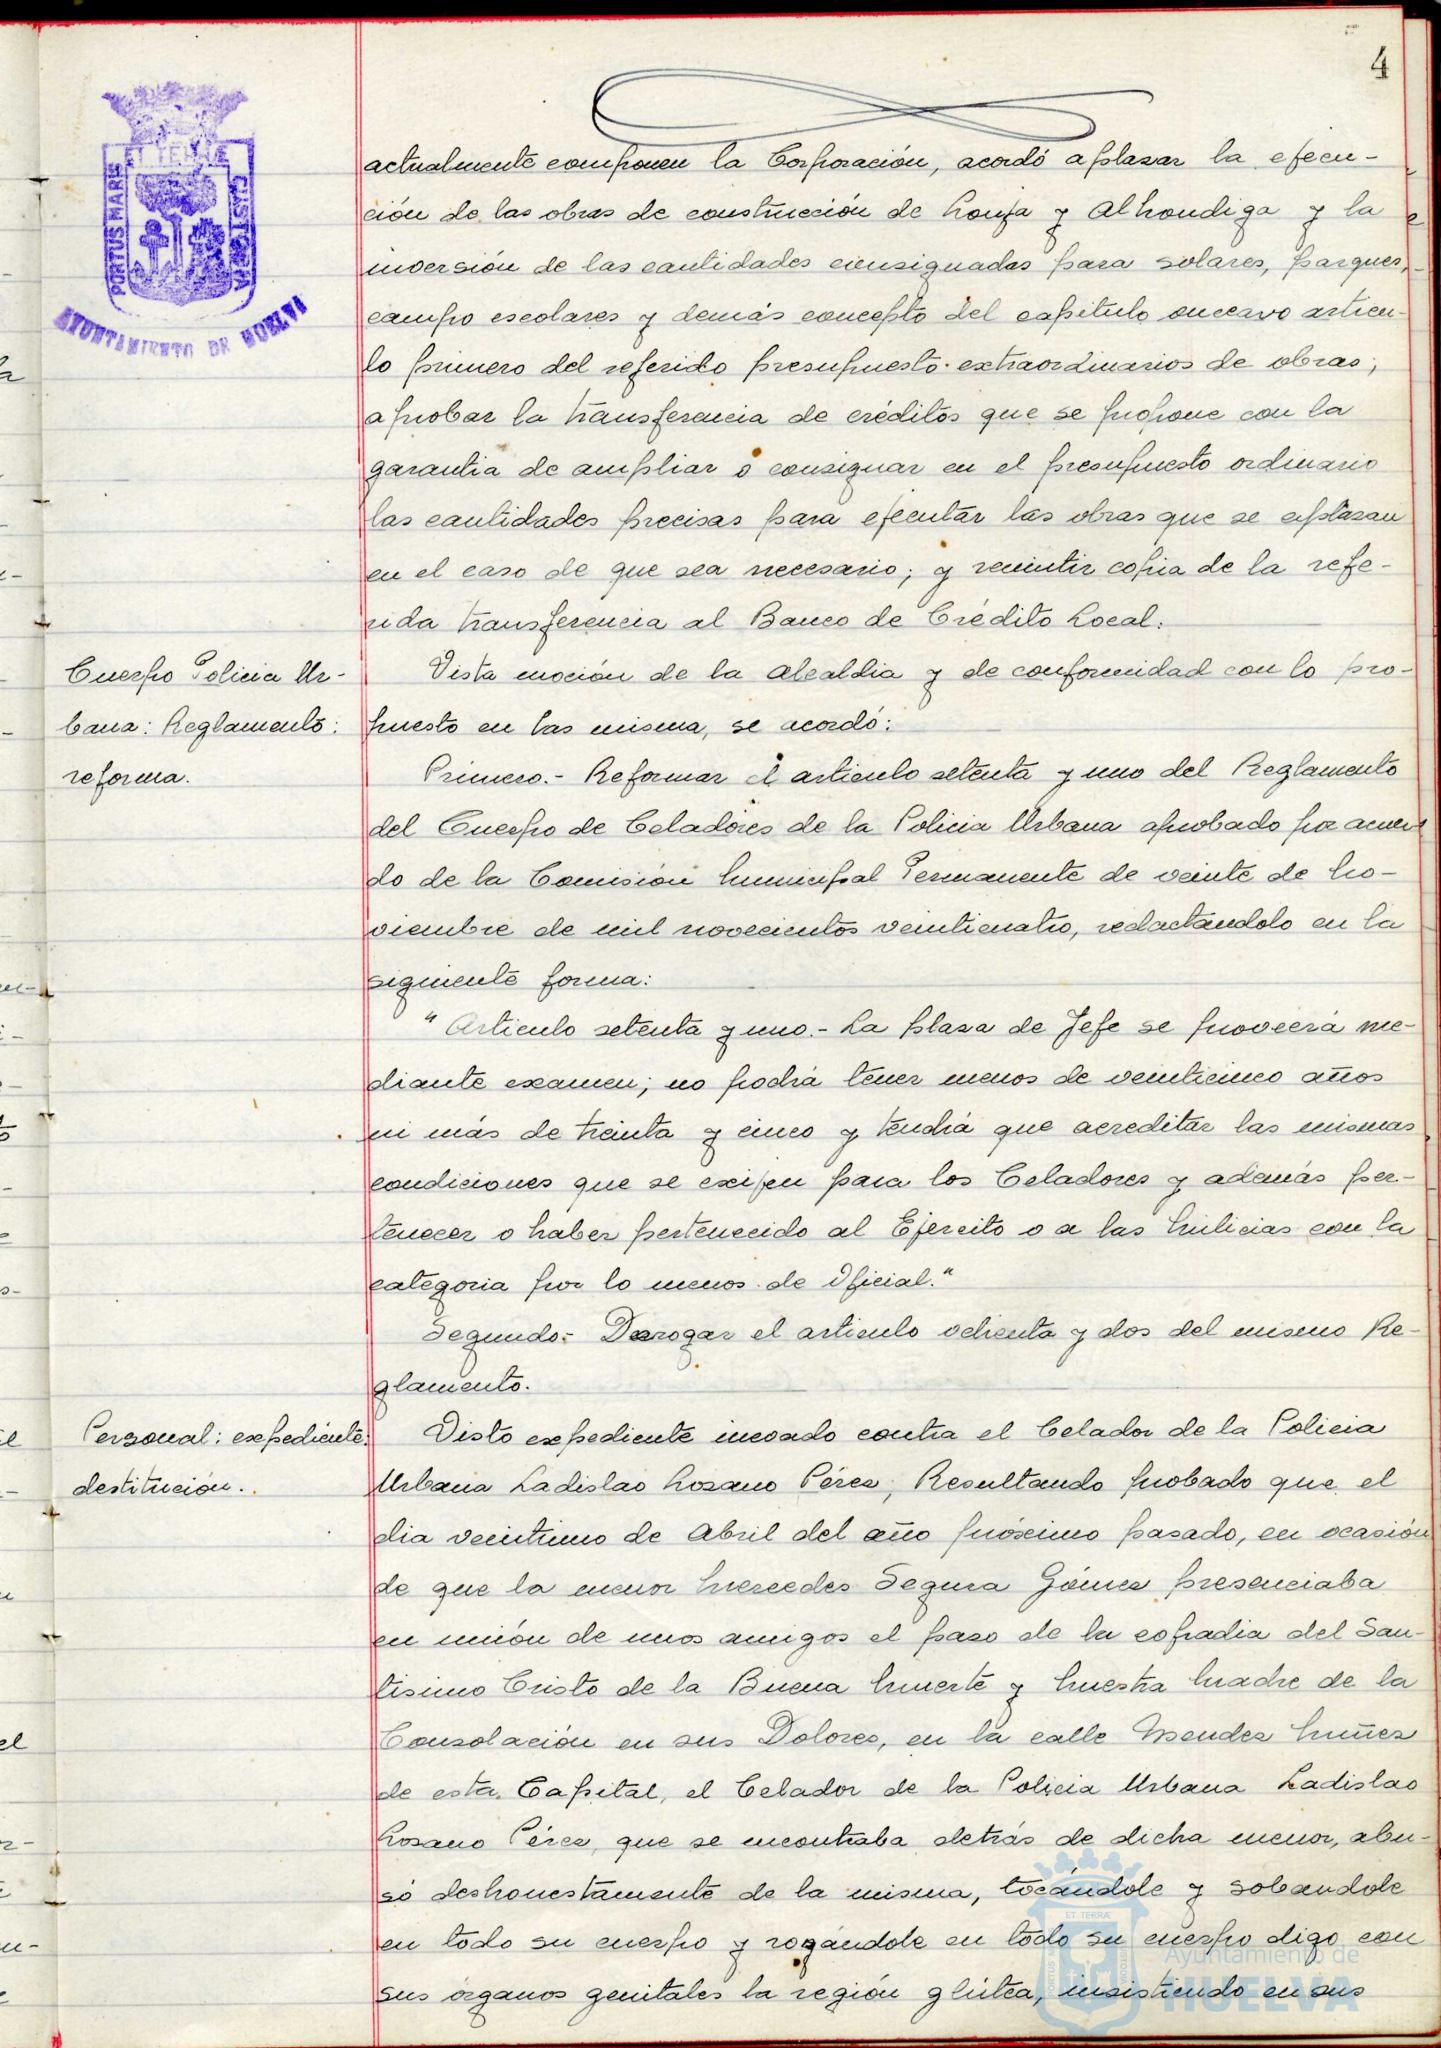 4
ET TERRÆ
PORTUS MARIS
CUSTODIA
AYUNTAMIENTO DE HUELVA
actualmente componen la Corporación, acordó aplazar la ejecu-
ción de las obras de construcción de Lonja y Alhondiga y la
inversión de las cantidades consignadas para solares, parques,
campo escolares y demás concepto del capitulo onceavo articu-
lo primero del referido presupuesto extraordinarios de obras;
aprobar la transferencia de créditos que se propone con la
garantia de ampliar o consignar en el presupuesto ordinario
las cantidades precisas para ejecutar las obras que se aplazan
en el caso de que sea necesario; y remintir copia de la refe-
rida transferencia al Banco de Crédito Local.
Cuerpo Policia Ur-
bana: Reglamento:
reforma.
Vista moción de la Alcaldia y de conformidad con lo pro-
puesto en las misma, se acordó:
Primero.- Reformar el articulo setenta y uno del Reglamento
del Cuerpo de Celadores de la Policia Urbana aprobado por acuer
do de la Comisión Municipal Permanente de veinte de No-
viembre de mil novecientos veinticuatro, redactándolo en la
siguiente forma:
" Articulo setenta y uno.- La plaza de Jefe se proveerá me-
diante examen; no podrá tener menos de veinticinco años
ni más de treinta y cinco y tendrá que acreditar las mismas
condiciones que se exijen para los Celadores y además per-
tenecer o haber pertenecido al Ejercito o a las Milicias con la
categoria por lo menos de Oficial."
Segundo.- Derogar el articulo ochenta y dos del mismo Re-
glamento.
Personal: expediente:
destitución.
Visto expediente incoado contra el Celador de la Policia
Urbana Ladislao Lozano Pérez; Resultando probado que el
dia veintiuno de Abril del año próximo pasado, en ocasión
de que la menor Mercedes Segura Gómez presenciaba
en unión de unos amigos el paso de la cofradia del San-
tisimo Cristo de la Buena Muerte y Nuestra Madre de la
Consolación en sus Dolores, en la calle Mendez Nuñez
de esta Capital, el Celador de la Policia Urbana Ladislao
Lozano Pérez, que se encontraba detrás de dicha menor, abu-
só deshonestamente de la misma, tocándole y sobandole
en todo su cuerpo y rozándole en todo su cuerpo digo con
sus órganos genitales la región glútea, insistiendo en sus
ET TERRÆ
Ayuntamiento de
HUELVA